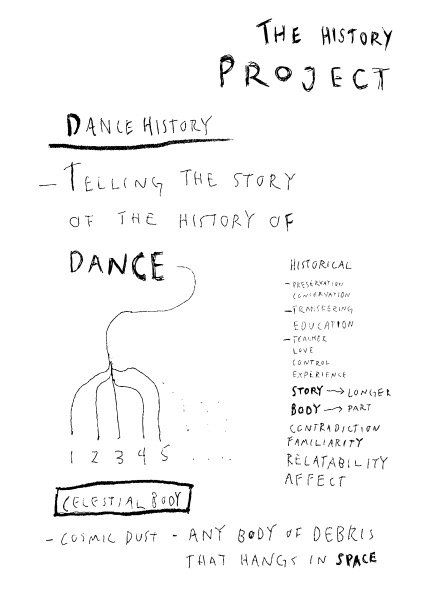 THE HISTORY
PROJECT
DANCE HISTORY
- TELLING THE STORY
OF THE HISTORY OF
DANCE
1 2 3 4 5 . . . .
HISTORICAL
- PRESERVATION
CONSERVATION
- TRANSFERING
EDUCATION
- TEACHER
LOVE
CONTROL
EXPERIENCE
STORY → LONGER
BODY → PART
CONTRADICTION
FAMILIARITY
RELATABILITY
AFFECT
CELESTIAL BODY
- COSMIC DUST - ANY BODY OF DEBRIS
THAT HANGS IN SPACE